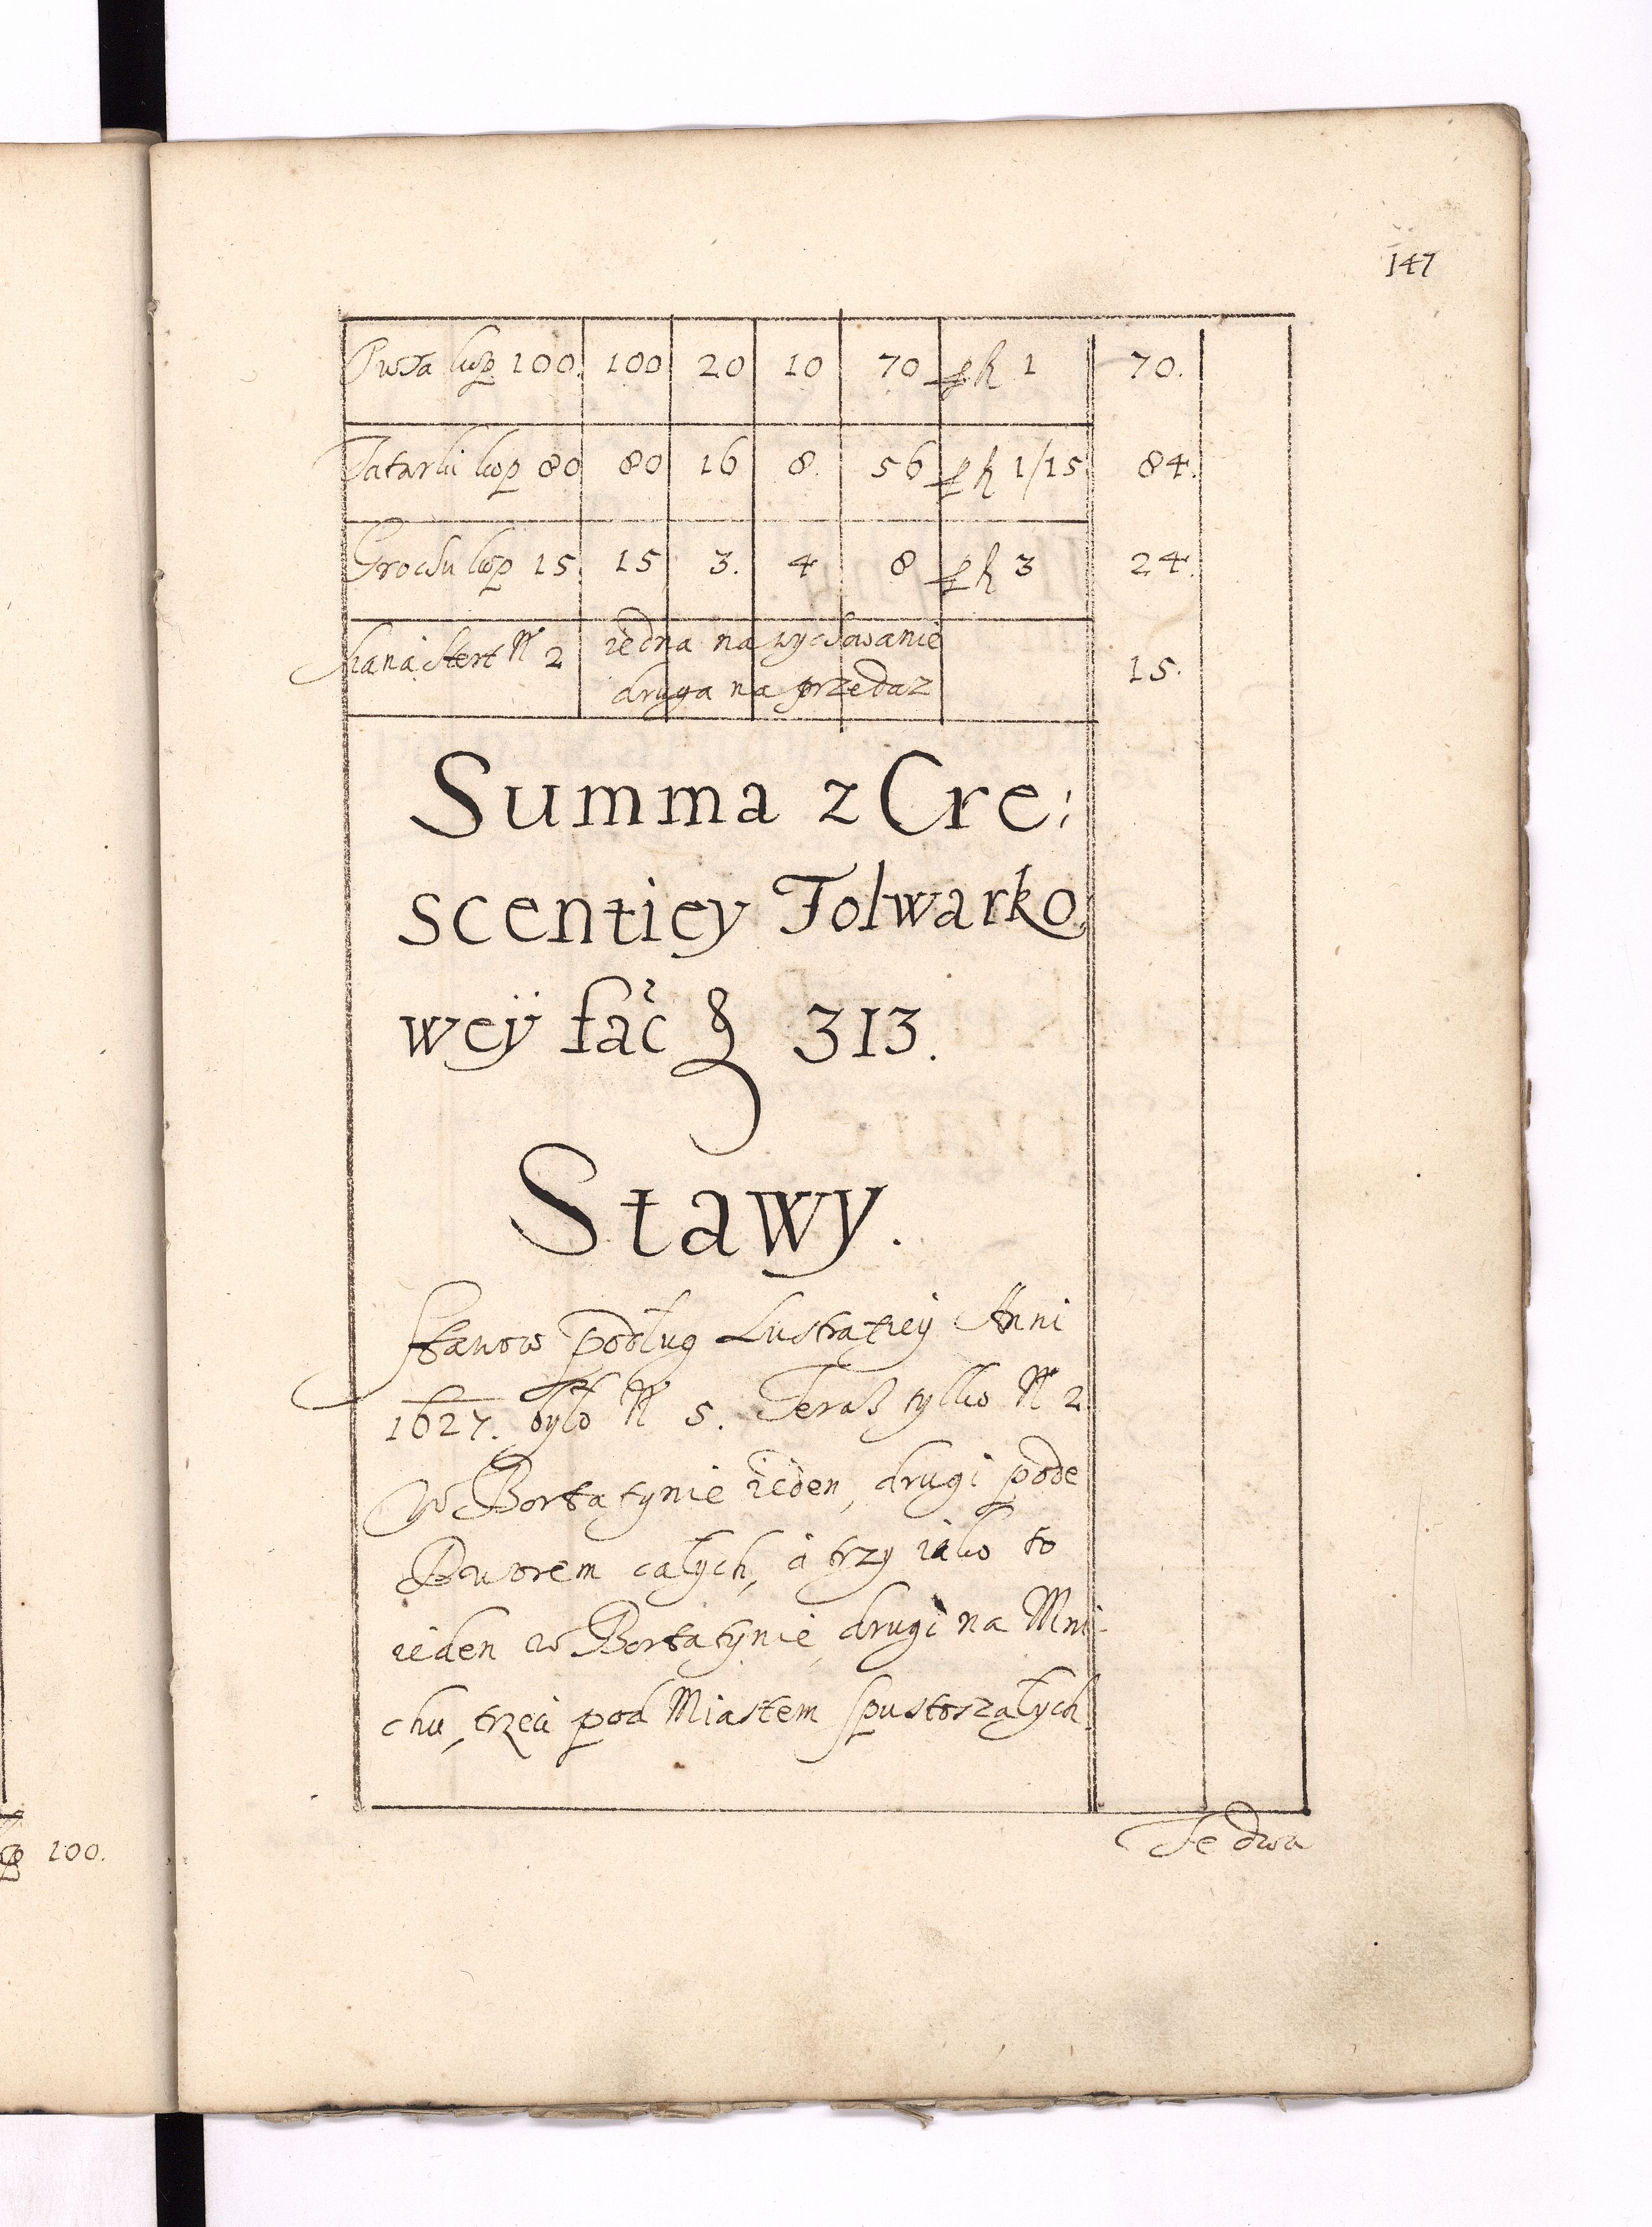 147
Owsa kop 100. 100 20 10 70 p fl 1 70.
Tatarki kop 80 80 16 8. 56 p fl 1/15 84.
Grochu kop 15. 15 3. 4 8 p fl 3 24.
Siana stert N 2 iedna na wychowanie
druga na przedaz 15.
Summa z Cre:
scentiey Folwarko,
wey fac 313.
Stawy.
Stawow podług Lustratiey Anni
1627. było N 5. Teraß tylko N 2
W Bortatynie ieden, drugi pode
Dworem całych, á trzy iako to
ieden w Bortatynie, drugi na Mni-
chu, trzeci pod Miastem spustoszałych
Te dwa
100.